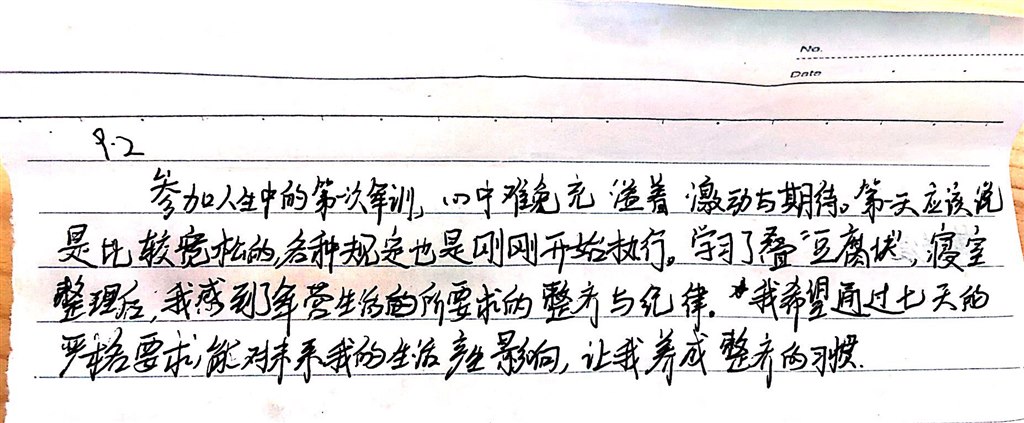 No.
Date
9.2
参加人生中的第一次军训，心中难免充溢着激动与期待。第一天应该说
是比较宽松的，各种规定也是刚刚开始执行。学习了叠“豆腐块”，寝室
整理后，我感到了军营生活的所要求的整齐与纪律。我希望通过七天的
严格要求，能对未来我的生活产生影响，让我养成整齐的习惯.